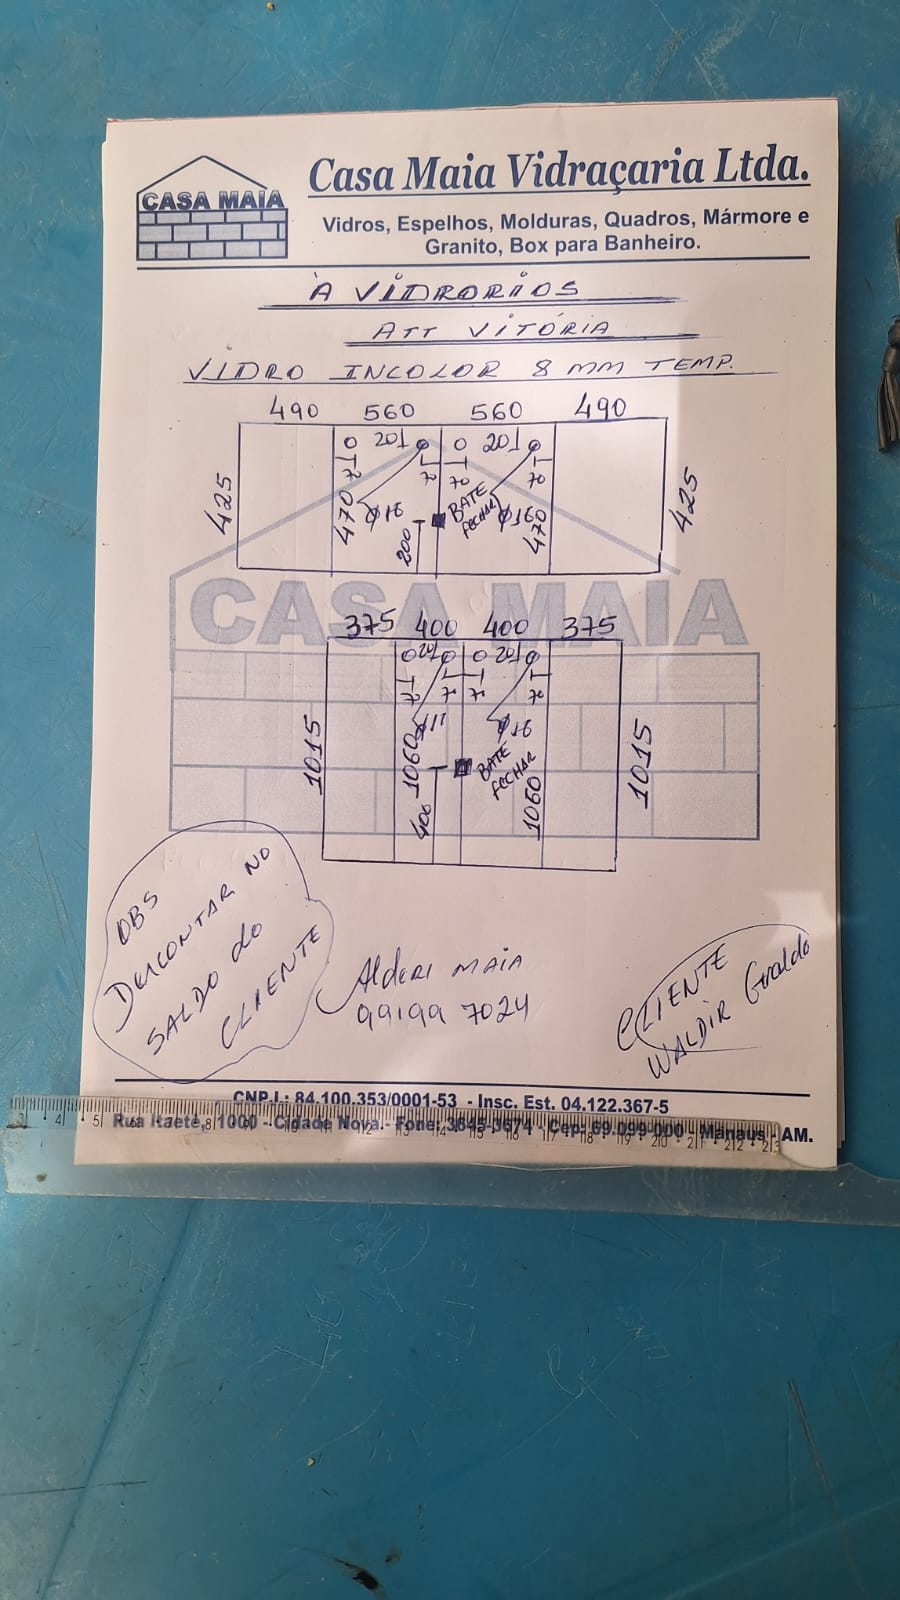 CASA MAIA
Casa Maia Vidraçaria Ltda.
Vidros, Espelhos, Molduras, Quadros, Mármore e
Granito, Box para Banheiro.
À VIDRORIOS
ATT VITÓRIA
VIDRO INCOLOR 8 MM TEMP.
490 560 560 490
201 201
70 70
425 470 Ø16 200 BATE FECHAR Ø16 470 425
CASA MAIA
375 400 400 375
201 201
1015 1060 400 BATE FECHAR Ø16 1060 1015
OBS
DESCONTAR NO
SALDO do
CLIENTE
Alderi MAIA
99199 7024
CLIENTE
WALDIR Geraldo
CNPJ.: 84.100.353/0001-53 - Insc. Est. 04.122.367-5
Rua Itaeté, 1000 - Cidade Nova - Fone: 3645-3674 - Cep: 69.099-000 - Manaus - AM.